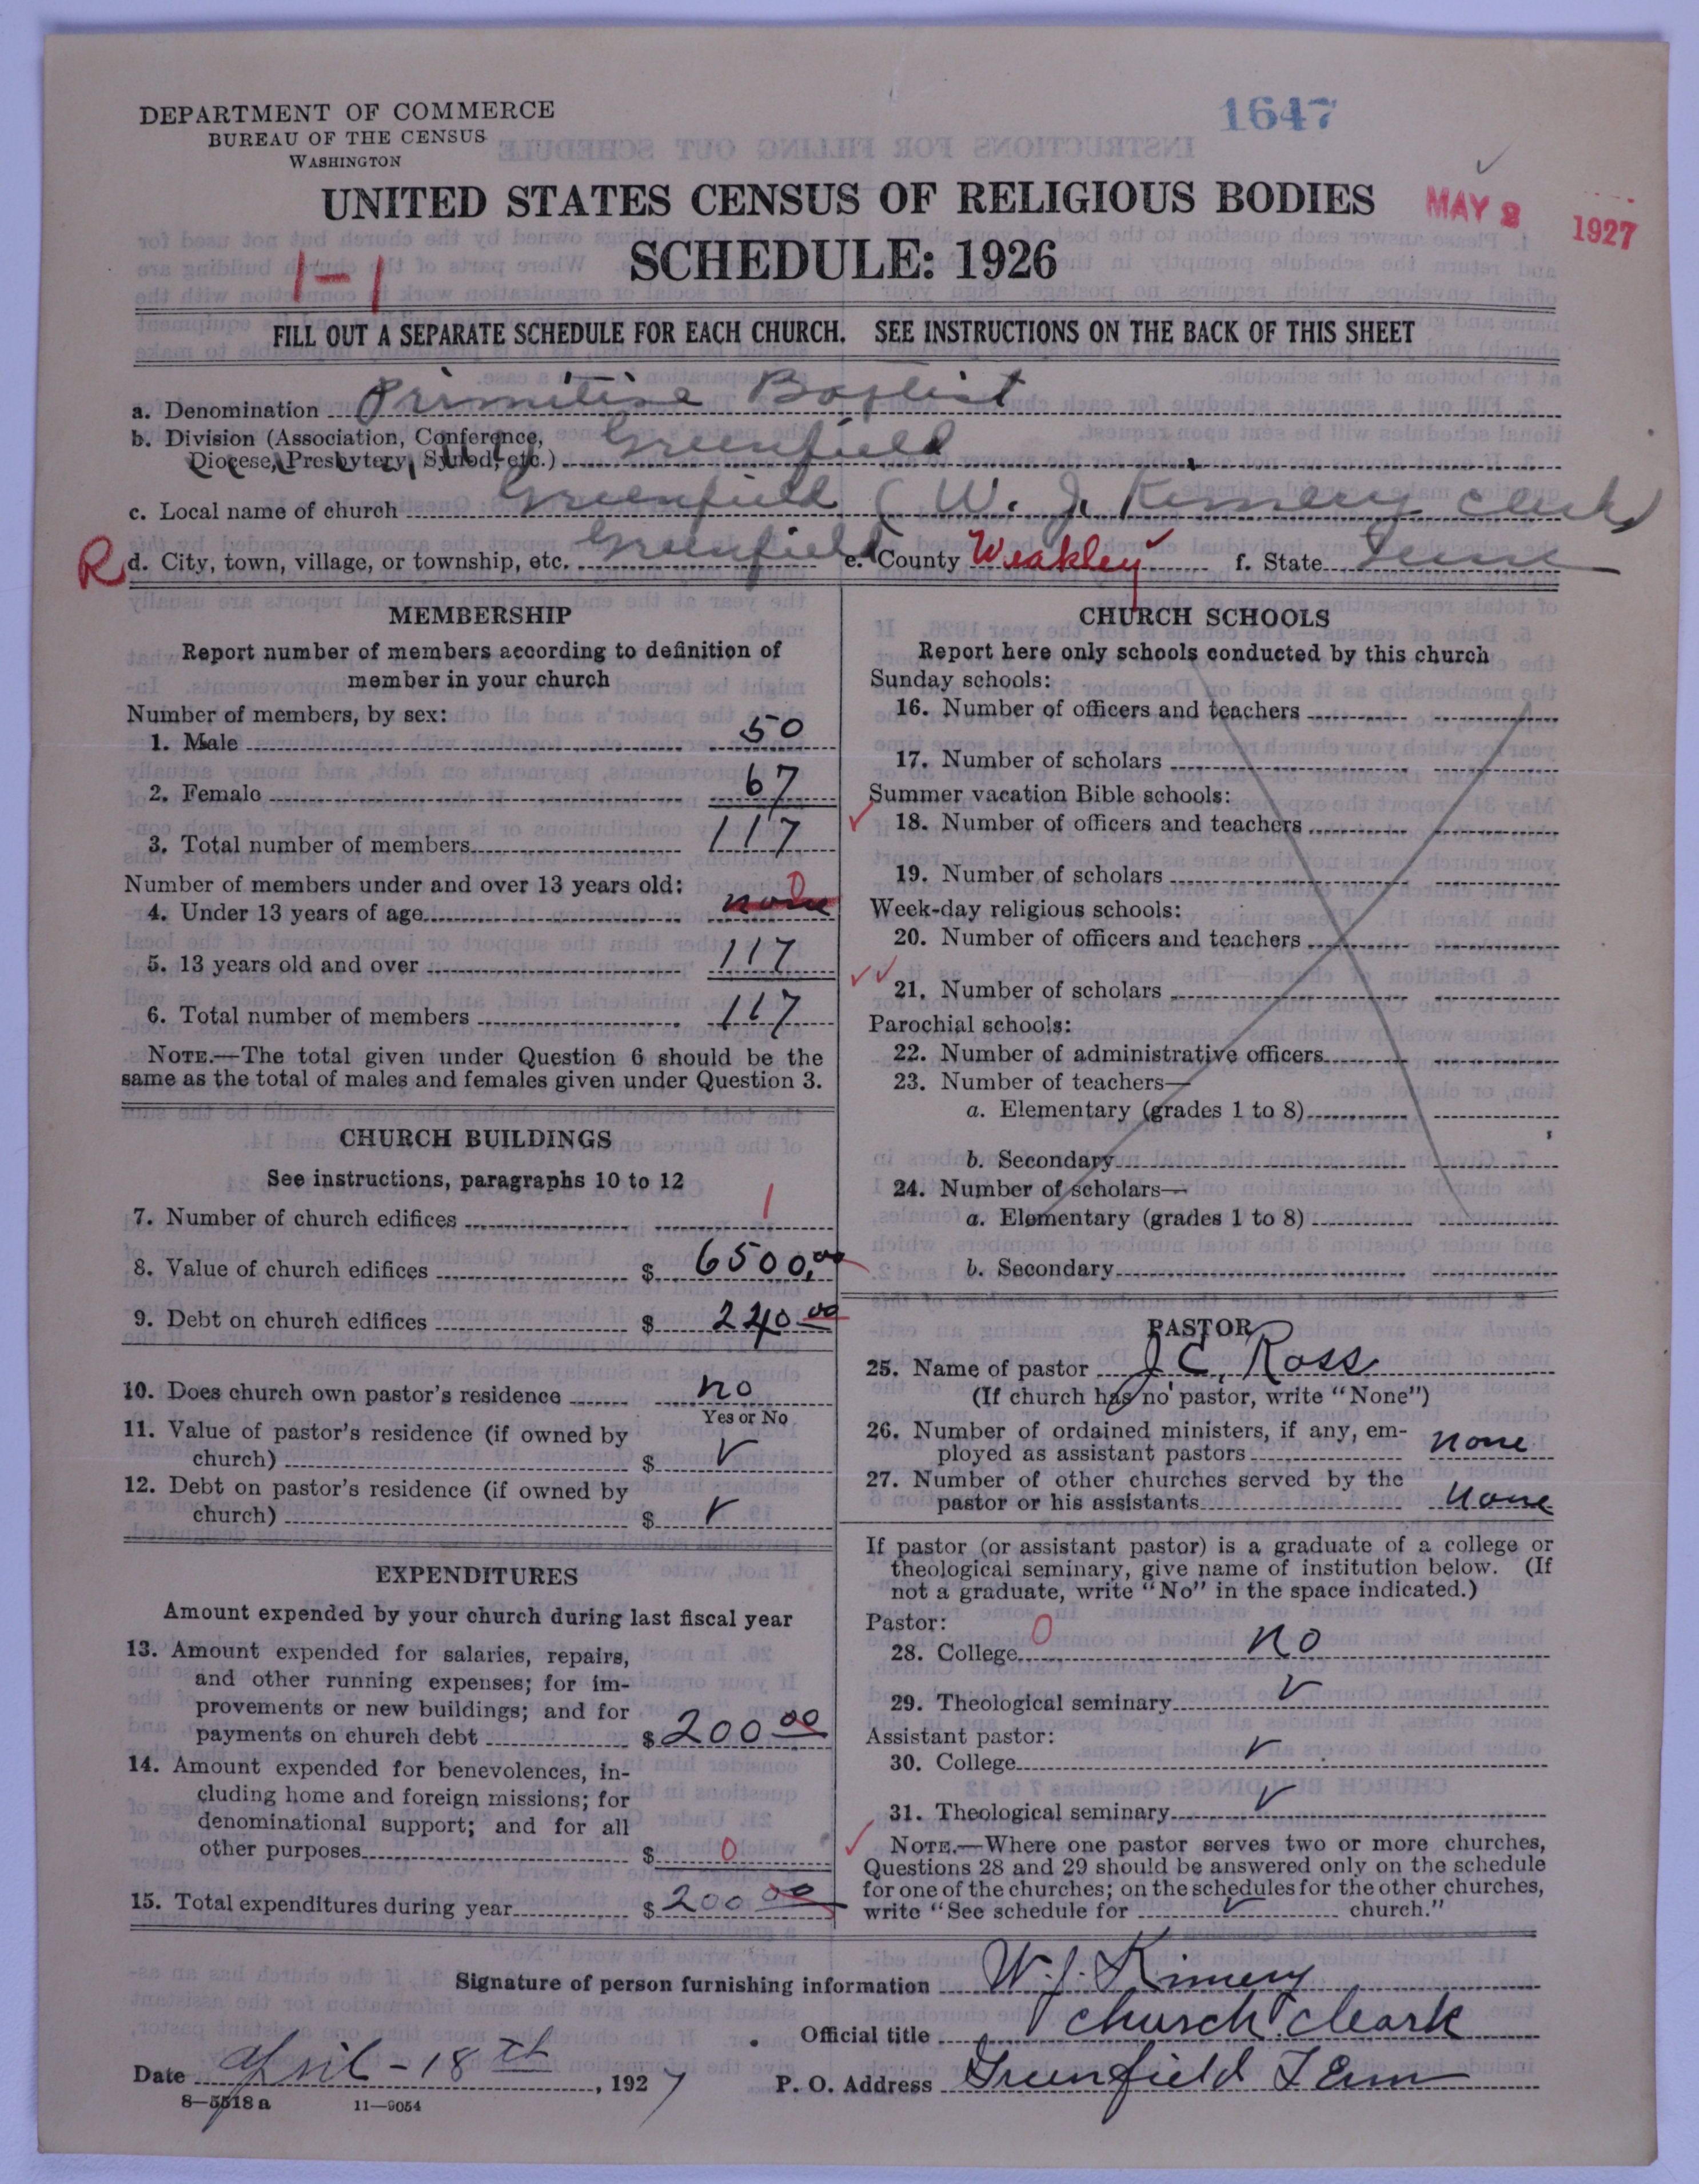 DEPARTMENT OF COMMERCE
BUREAU OF THE CENSUS
WASHINGTON
1647
UNITED STATES CENSUS OF RELIGIOUS BODIES
MAY 2 1927
SCHEDULE: 1926
1-1
FILL OUT A SEPARATE SCHEDULE FOR EACH CHURCH. SEE INSTRUCTIONS ON THE BACK OF THIS SHEET
a. Denomination Primitive Baptist
b. Division (Association, Conference, Diocese, Presbytery, Synod, etc.) Greenfield
c. Local name of church Greenfield (W. J. Kimery Clerk)
R d. City, town, village, or township, etc. Greenfield e. County Weakley f. State Tenn
MEMBERSHIP
Report number of members according to definition of
member in your church
Number of members, by sex:
1. Male 50
2. Female 67
3. Total number of members 117
Number of members under and over 13 years old:
4. Under 13 years of age none 0
5. 13 years old and over 117
6. Total number of members 117
NOTE.—The total given under Question 6 should be the
same as the total of males and females given under Question 3.
CHURCH BUILDINGS
See instructions, paragraphs 10 to 12
7. Number of church edifices 1
8. Value of church edifices $ 6500.00
9. Debt on church edifices $ 240 00
10. Does church own pastor's residence no
Yes or No
11. Value of pastor's residence (if owned by
church) $ ✓
12. Debt on pastor's residence (if owned by
church) $ ✓
EXPENDITURES
Amount expended by your church during last fiscal year
13. Amount expended for salaries, repairs,
and other running expenses; for im-
provements or new buildings; and for
payments on church debt $ 200 00
14. Amount expended for benevolences, in-
cluding home and foreign missions; for
denominational support; and for all
other purposes $ 0
15. Total expenditures during year $ 200 00
CHURCH SCHOOLS
Report here only schools conducted by this church
Sunday schools:
16. Number of officers and teachers
17. Number of scholars
Summer vacation Bible schools:
18. Number of officers and teachers
19. Number of scholars
Week-day religious schools:
20. Number of officers and teachers
21. Number of scholars
Parochial schools:
22. Number of administrative officers
23. Number of teachers—
a. Elementary (grades 1 to 8)
b. Secondary
24. Number of scholars—
a. Elementary (grades 1 to 8)
b. Secondary
PASTOR
25. Name of pastor J C, Ross
(If church has no pastor, write "None")
26. Number of ordained ministers, if any, em-
ployed as assistant pastors none
27. Number of other churches served by the
pastor or his assistants None
If pastor (or assistant pastor) is a graduate of a college or
theological seminary, give name of institution below. (If
not a graduate, write "No" in the space indicated.)
Pastor:
28. College 0 no
29. Theological seminary ✓
Assistant pastor:
30. College ✓
31. Theological seminary ✓
NOTE.—Where one pastor serves two or more churches,
Questions 28 and 29 should be answered only on the schedule
for one of the churches; on the schedules for the other churches,
write "See schedule for ✓ church."
Signature of person furnishing information W. J. Kimery
Official title Church Cleark
Date April - 18th, 1927 P. O. Address Greenfield Tenn
8—5518 a 11—9054